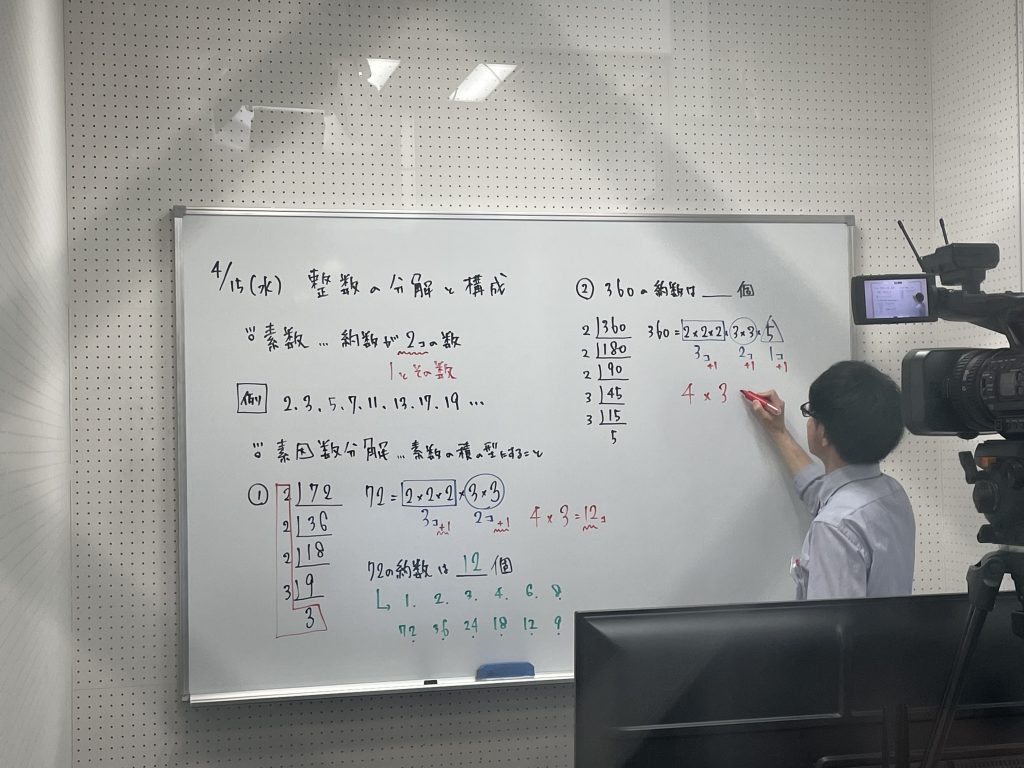 4/15(水) 整数の分解と構成
◎素数…約数が2コの数
1とその数
例 2.3.5.7.11.13.17.19…
◎素因数分解…素数の積の型にすること
① 2 72
2 36
2 18
3 9
3
72=2×2×2×3×3
3コ+1 2コ+1 4×3=12コ
72の約数は 12 個
↳ 1. 2. 3. 4. 6. 8
72 36 24 18 12 9
② 360の約数は ___ 個
2 360
2 180
2 90
3 45
3 15
5
360=2×2×2×3×3×5
3コ+1 2コ+1 1コ+1
4×3